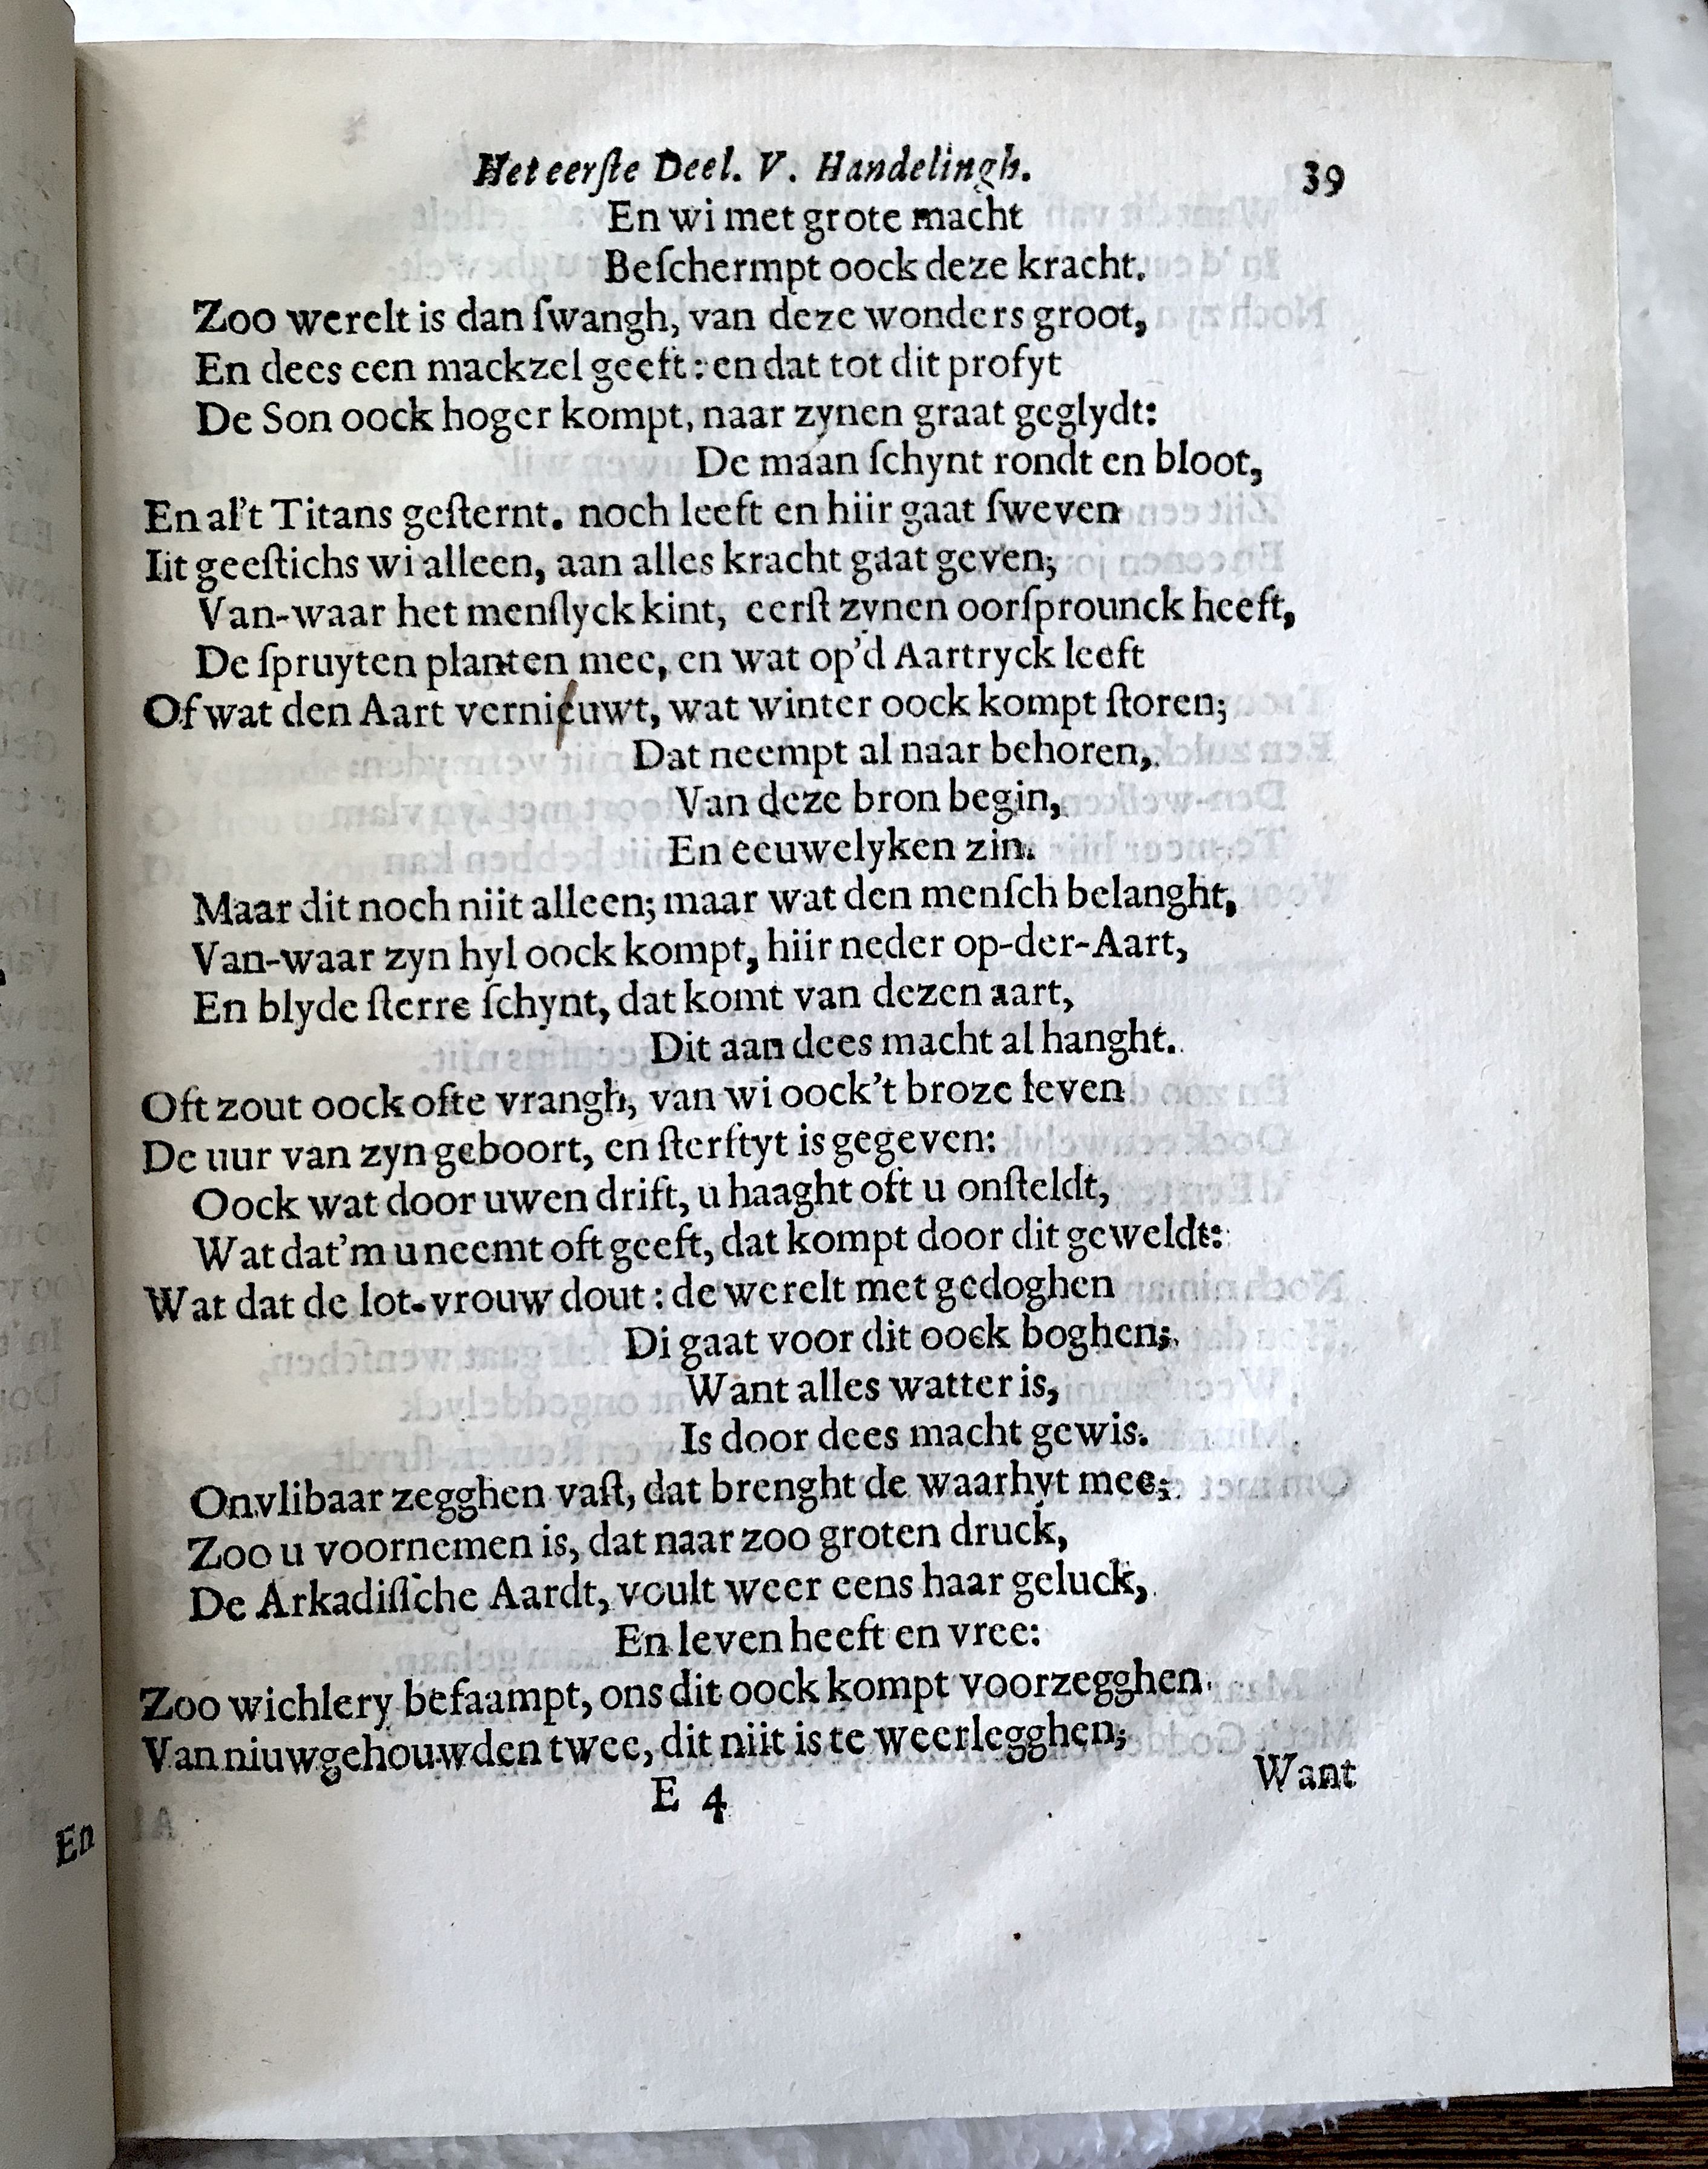 Het eerſte Deel. V. Handelingh. 39
En wi met grote macht
Beſchermpt oock deze kracht.
Zoo werelt is dan ſwangh, van deze wonders groot,
En dees een mackzel geeft: en dat tot dit profyt
De Son oock hoger kompt, naar zynen graat geglydt:
De maan ſchynt rondt en bloot,
En al't Titans geſternt. noch leeft en hiir gaat ſweven
Iit geeſtichs wi alleen, aan alles kracht gaat geven;
Van-waar het menſlyck kint, eerſt zynen oorſprounck heeft,
De ſpruyten planten mee, en wat op'd Aartryck leeft
Of wat den Aart vernieuwt, wat winter oock kompt ſtoren;
Dat neempt al naar behoren,
Van deze bron begin,
En eeuwelyken zin.
Maar dit noch niit alleen; maar wat den menſch belanght,
Van-waar zyn hyl oock kompt, hiir neder op-der-Aart,
En blyde ſterre ſchynt, dat komt van dezen aart,
Dit aan dees macht al hanght.
Oft zout oock ofte vrangh, van wi oock't broze leven
De uur van zyn geboort, en ſterftyt is gegeven:
Oock wat door uwen drift, u haaght oft u onſteldt,
Wat dat'm u neemt oft geeft, dat kompt door dit geweldt:
Wat dat de lot-vrouw dout: de werelt met gedoghen
Di gaat voor dit oock boghen;
Want alles watter is,
Is door dees macht gewis.
Onvlibaar zegghen vaſt, dat brenght de waarhyt mee;
Zoo u voornemen is, dat naar zoo groten druck,
De Arkadiſſche Aardt, voult weer eens haar geluck,
En leven heeft en vree:
Zoo wichlery befaampt, ons dit oock kompt voorzegghen
Van niuwgehouwden twee, dit niit is te weerlegghen;
E 4 Want
En